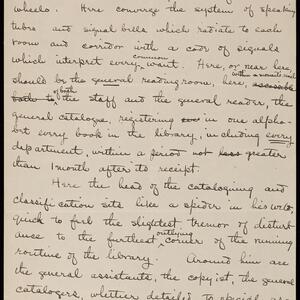 wheels. Here converge the system of speaking
tubes and signal bells which radiate to each
room and corridor with a code of signals
which interpret every common want. Here, or near here,
should be the general reading room, here, within a minute's call
of both the staff and the general reader, the
general catalogue, registering in one alpha-
bet every book in the library, including every
department, within a period not greater
than 1 month after its receipt.
Here the head of the cataloguing and
classification sits like a spider in his web,
quick to feel the slightest tremor of disturb-
ance to the furthest outlying corner of the running
routine of the library. Around him are
the general assistants, the copyist, the general
catalogers, whether detailed to special